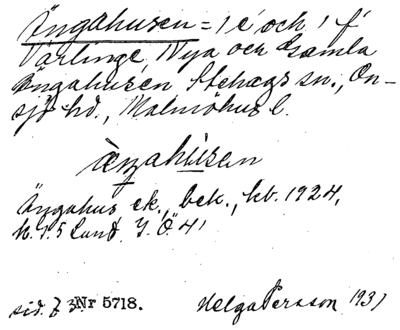 Ängahusen = 1 é och 1 f
Värlinge, Nya och Gamla
Ängahusen Stehags sn., On-
sjö hd., Malmöhus l.
ängahúsen
Ängahus ek., beb., kb. 1924,
k. 1.5 Lund, J. Ö 41
sid. 73 Nr 5718.
Helga Persson 1931